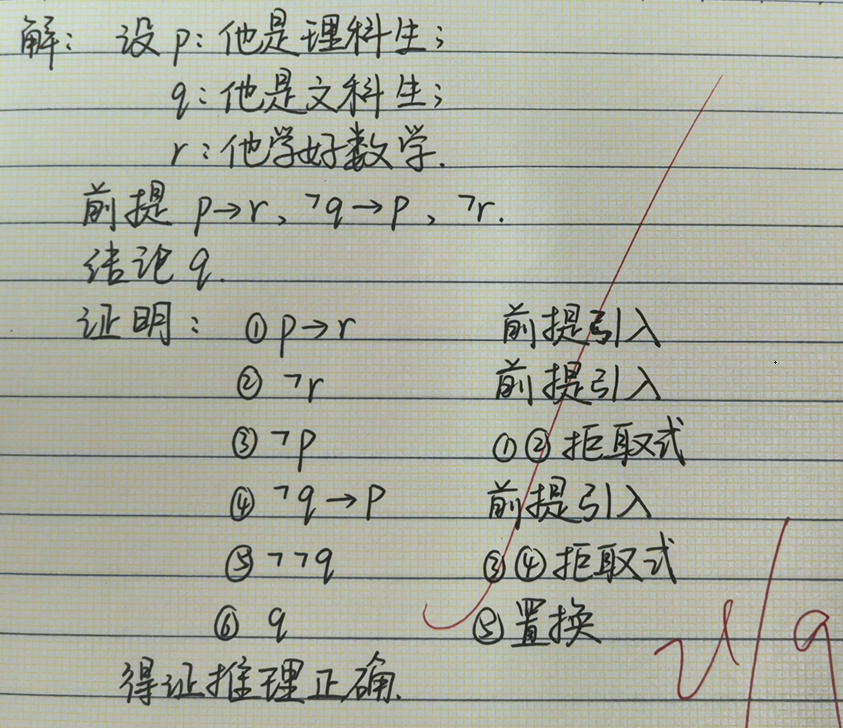 解: 设 p: 他是理科生;
q: 他是文科生;
r: 他学好数学.
前提 p→r, ¬q→p, ¬r.
结论 q.
证明: ① p→r 前提引入
② ¬r 前提引入
③ ¬p ①②拒取式
④ ¬q→p 前提引入
⑤ ¬¬q ③④拒取式
⑥ q ⑤置换
得证推理正确.